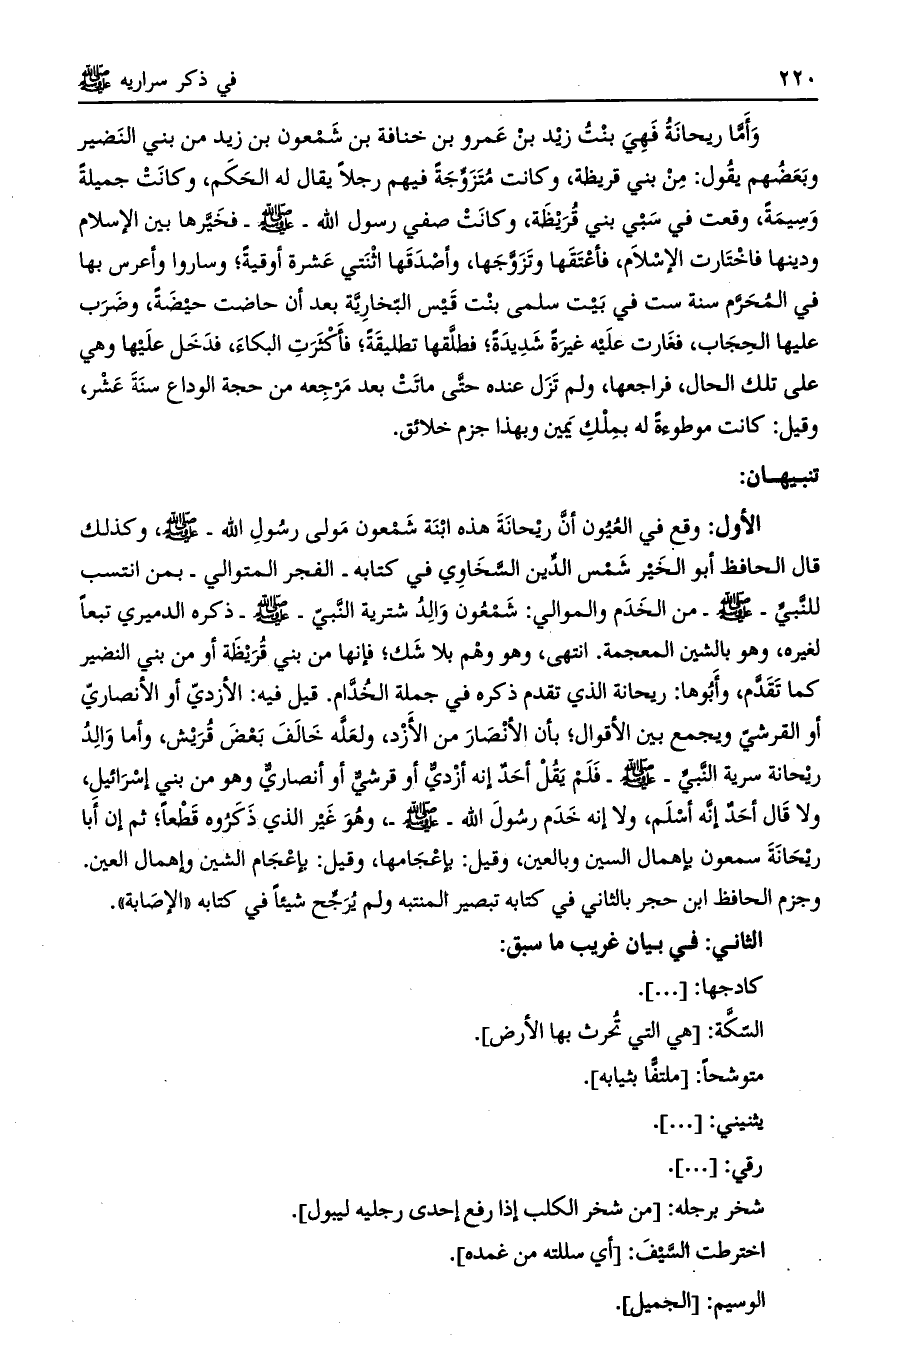 ٢٢٠ في ذكر سراريه ﷺ
وَأَمَّا ريحانَةُ فَهِيَ بنْتُ زيْد بنْ عَمرو بن خنافة بن شَمْعون بن زيد من بني النَضير
وبَعَضُهم يقُول: مِنْ بني قريظة، وكانت مُتَزَوِّجَةً فيهم رجلاً يقال له الحَكَم، وكانَتْ جميلةً
وَسِيمَةً، وقعت في سَبْي بني قُرَيْظَة، وكانَتْ صفي رسول الله - ﷺ - فخيَّرها بين الإسلام
ودينها فاخْتَارت الإسْلاَم، فأعْتَقَها وتَزَوَّجَها، وأصْدَقَها اثْنَتي عَشرة أوقيةً؛ وساروا وأعرس بها
في المُحَرَّم سنة ست في بَيْت سلمى بنْت قَيْس النّجّاريَّة بعد أن حاضت حيْضَةً، وضَرَب
عليها الحِجَاب، فغَارت علَيْه غيرةً شَدِيدَةً؛ فطلَّقها تطليقَةً؛ فأَكْثَرَتِ البكاءَ، فدَخَل علَيْها وهي
على تلك الحال، فراجعها، ولم تَزَل عنده حتَّى ماتَتْ بعد مَرْجِعه من حجة الوداع سنَةَ عَشْر،
وقيل: كانت موطوءةً له بمِلْكِ يَمين وبهذا جزم خلائق.
تنبيهـان:
الأول: وقع في العُيُون أنَّ ريْحانَةَ هذه ابْنَة شَمْعون مَولى رسُولِ الله - ﷺ، وكذلك
قال الحافظ أبو الخَيْر شَمْس الدِّين السَّخَاوِي في كتابه - الفجر المتوالي - بمن انتسب
للنَّبيِّ - ﷺ - من الخَدَم والموالي: شَمْعُون وَالِدُ شترية النَّبيّ - ﷺ - ذكره الدميري تبعاً
لغيره، وهو بالشين المعجمة. انتهى، وهو وهْم بلا شَك؛ فإنها من بني قُرَيْظَة أو من بني النضير
كما تَقَدَّم، وأَبُوها: ريحانة الذي تقدم ذكره في جملة الخُدَّام. قيل فيه: الأزديّ أو الأنصاريّ
أو القرشيّ ويجمع بين الأقوال؛ بأن الأنْصَارَ من الأَزْد، ولعلَّه خَالَفَ بَعْضَ قُرَيْش، وأما وَالِدُ
ريْحانة سرية النَّبيِّ - ﷺ - فَلَمْ يَقُلْ أحَدٌ إنه أزْديٌّ أو قرشيٌّ أو أنصاريٌّ وهو من بني إسْرَائيل،
ولا قَال أحَدٌ إنَّه أسْلَم، ولا إنه خَدَم رسُولَ الله - ﷺ -، وهُوَ غَيْر الذي ذَكَرُوه قَطْعاً؛ ثم إن أَبا
ريْحَانَةَ سمعون بإهمال السين وبالعين، وقيل: بإعْجَامها، وقيل: بإعْجَام الشين وإهمال العين.
وجزم الحافظ ابن حجر بالثاني في كتابه تبصير المنتبه ولم يُرَجِّح شيئاً في كتابه «الإصَابة».
الثاني: فـي بيان غريب ما سبق:
كادجها: [...].
السّكَّة: [هي التي تُحرث بها الأرض].
متوشحاً: [ملتفًّا بثيابه].
يثنيني: [...].
رقي: [...].
شخر برجله: [من شخر الكلب إذا رفع إحدى رجليه ليبول].
اخترطت السَّيْفَ: [أي سللته من غمده].
الوسيم: [الجميل].